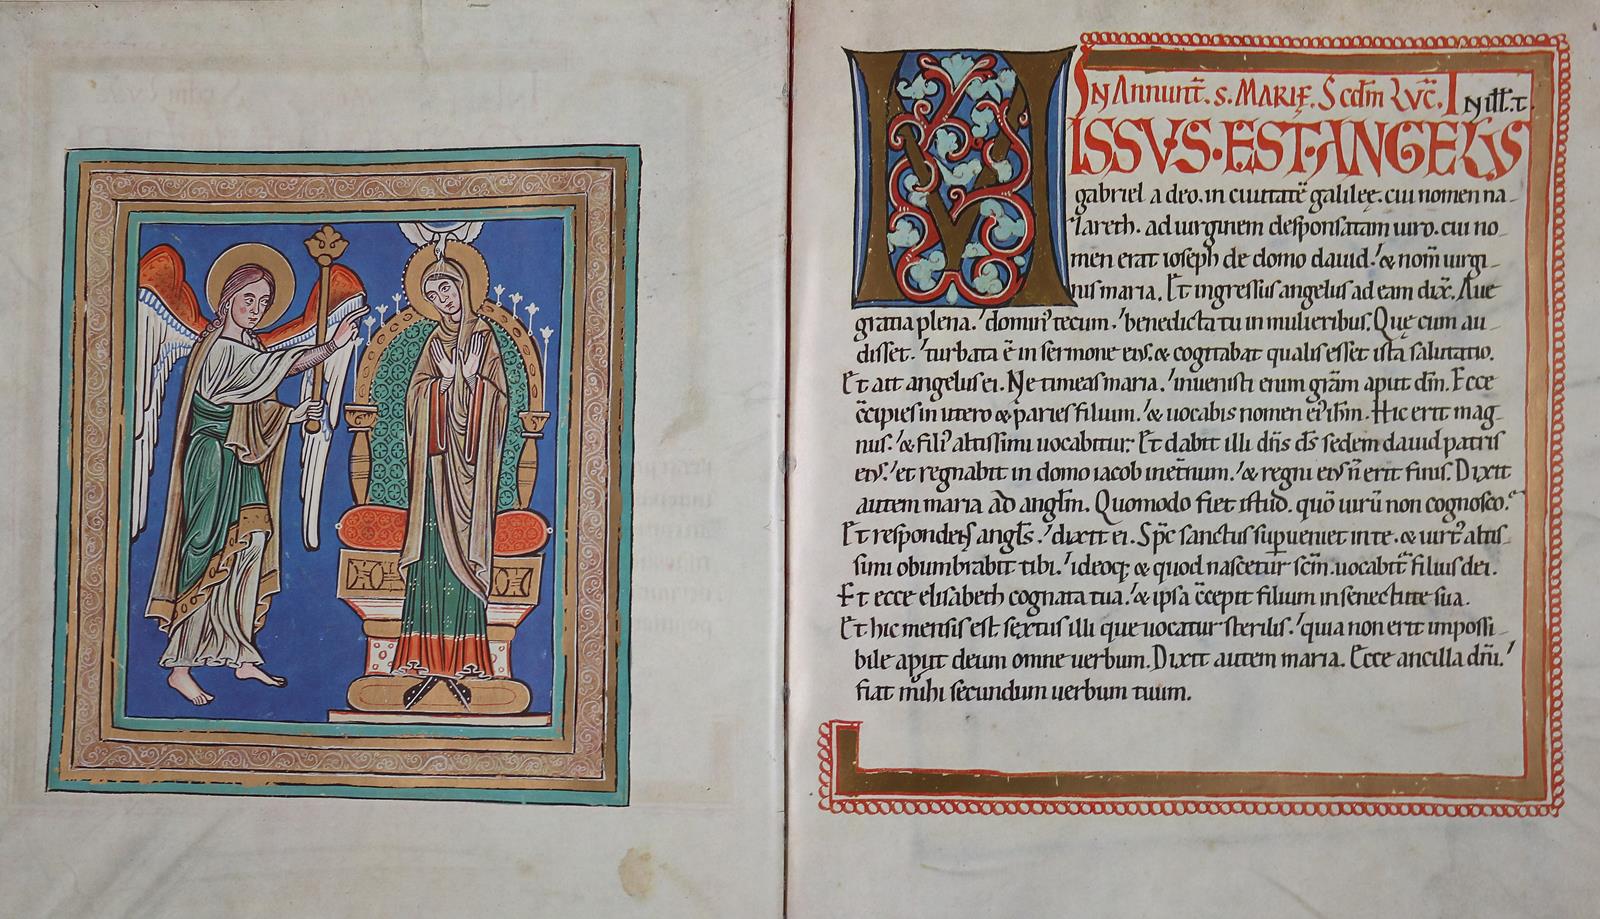 IN Annunt̄. S. MARIĘ. Scdm̄ LVC̄. IN ill̄. t̄.
MISSVS·EST·ANGELVS
gabriel a deo. in ciuitatē galileę. cui nomen na-
zareth. ad uirginem desponsatam uiro. cui no-
men erat ioseph de domo dauid. & nom̄ uirgi-
nis maria. Et ingressus angelus ad eam dix̄. Aue
gratia plena. domin' tecum. benedicta tu in mulieribus. Quę cum au-
disset. turbata ē in sermone ei'. & cogitabat qualis esset ista salutatio.
Et ait angelus ei. Ne timeas maria. inuenisti enim gr̄am aput dm̄. Ecce
c̄cipies in utero & paries filium. & uocabis nomen ei' ihm̄. Hic erit mag-
nus. & fili' altissimi uocabitur. Et dabit illi dn̄s ds̄ sedem dauid patris
ei'. et regnabit in domo iacob in et̄num. & regni ei' n̄ erit finis. Dixit
autem maria ad angl̄m. Quomodo fiet istud. quō uirū non cognosco.
Et respondens angl̄s. dixit ei. Spc̄ sanctus supueniet in te. & uirt' altis-
simi obumbrabit tibi. ideoq; & quod nascetur scm̄. uocabit̄ filius dei.
Et ecce elisabeth cognata tua. & ipsa c̄cepit filium in senectute sua.
Et hic mensis est sextus illi que uocatur sterilis. quia non erit impossi-
bile aput deum omne uerbum. Dixit autem maria. Ecce ancilla dn̄i.
fiat mihi secundum uerbum tuum.